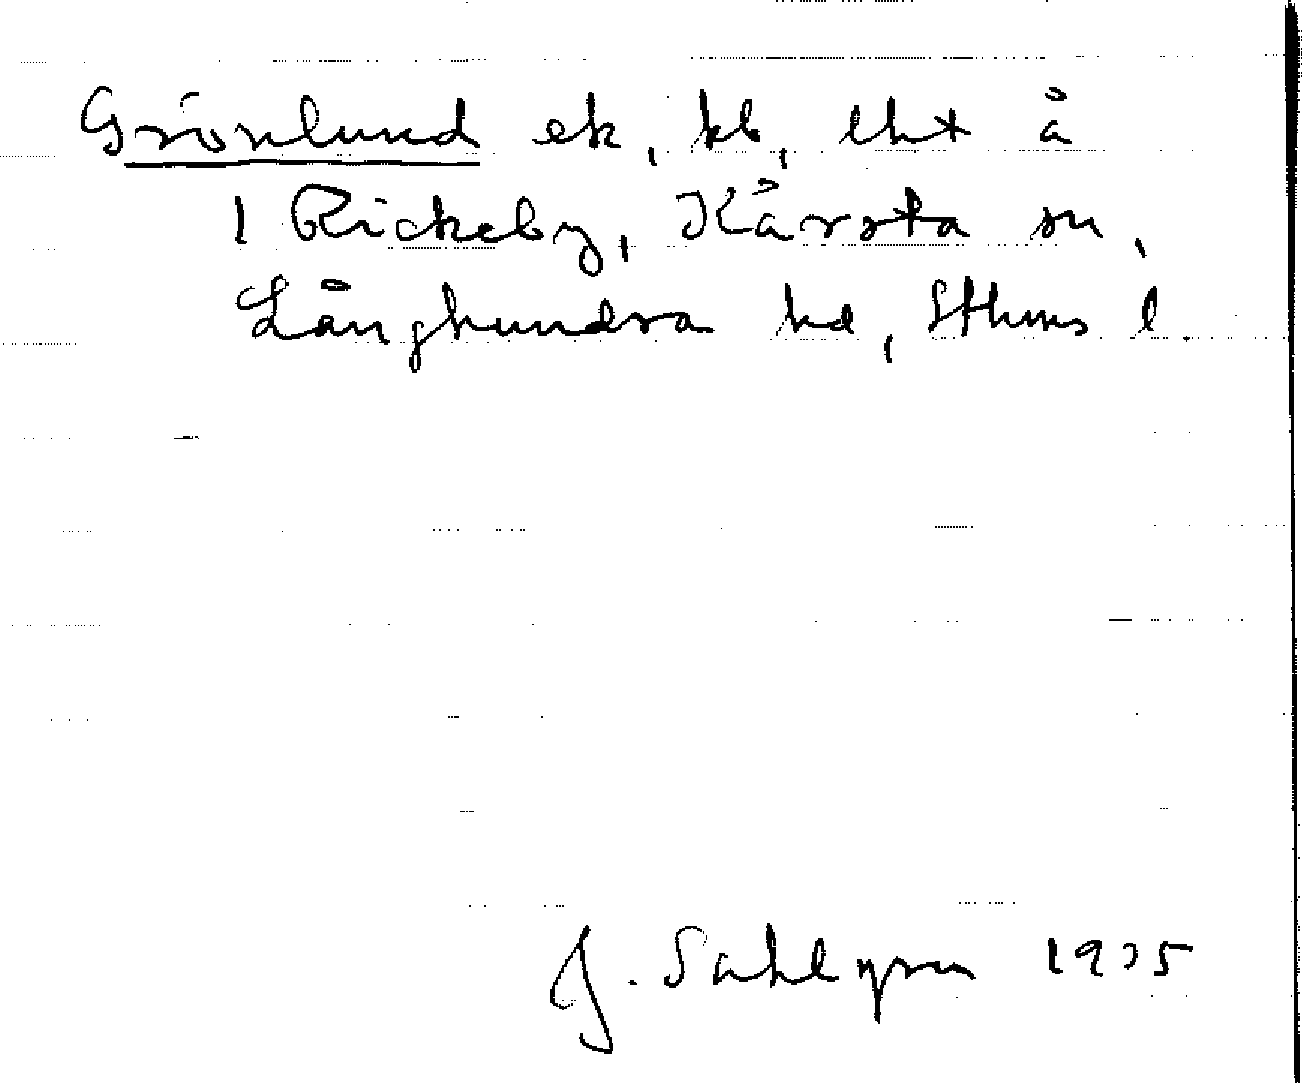 Grönlund ek, kb, lht å
1 Rickeby, Kårsta sn,
Långhundra hd, Sthms l.
J. Sahlgren 1935